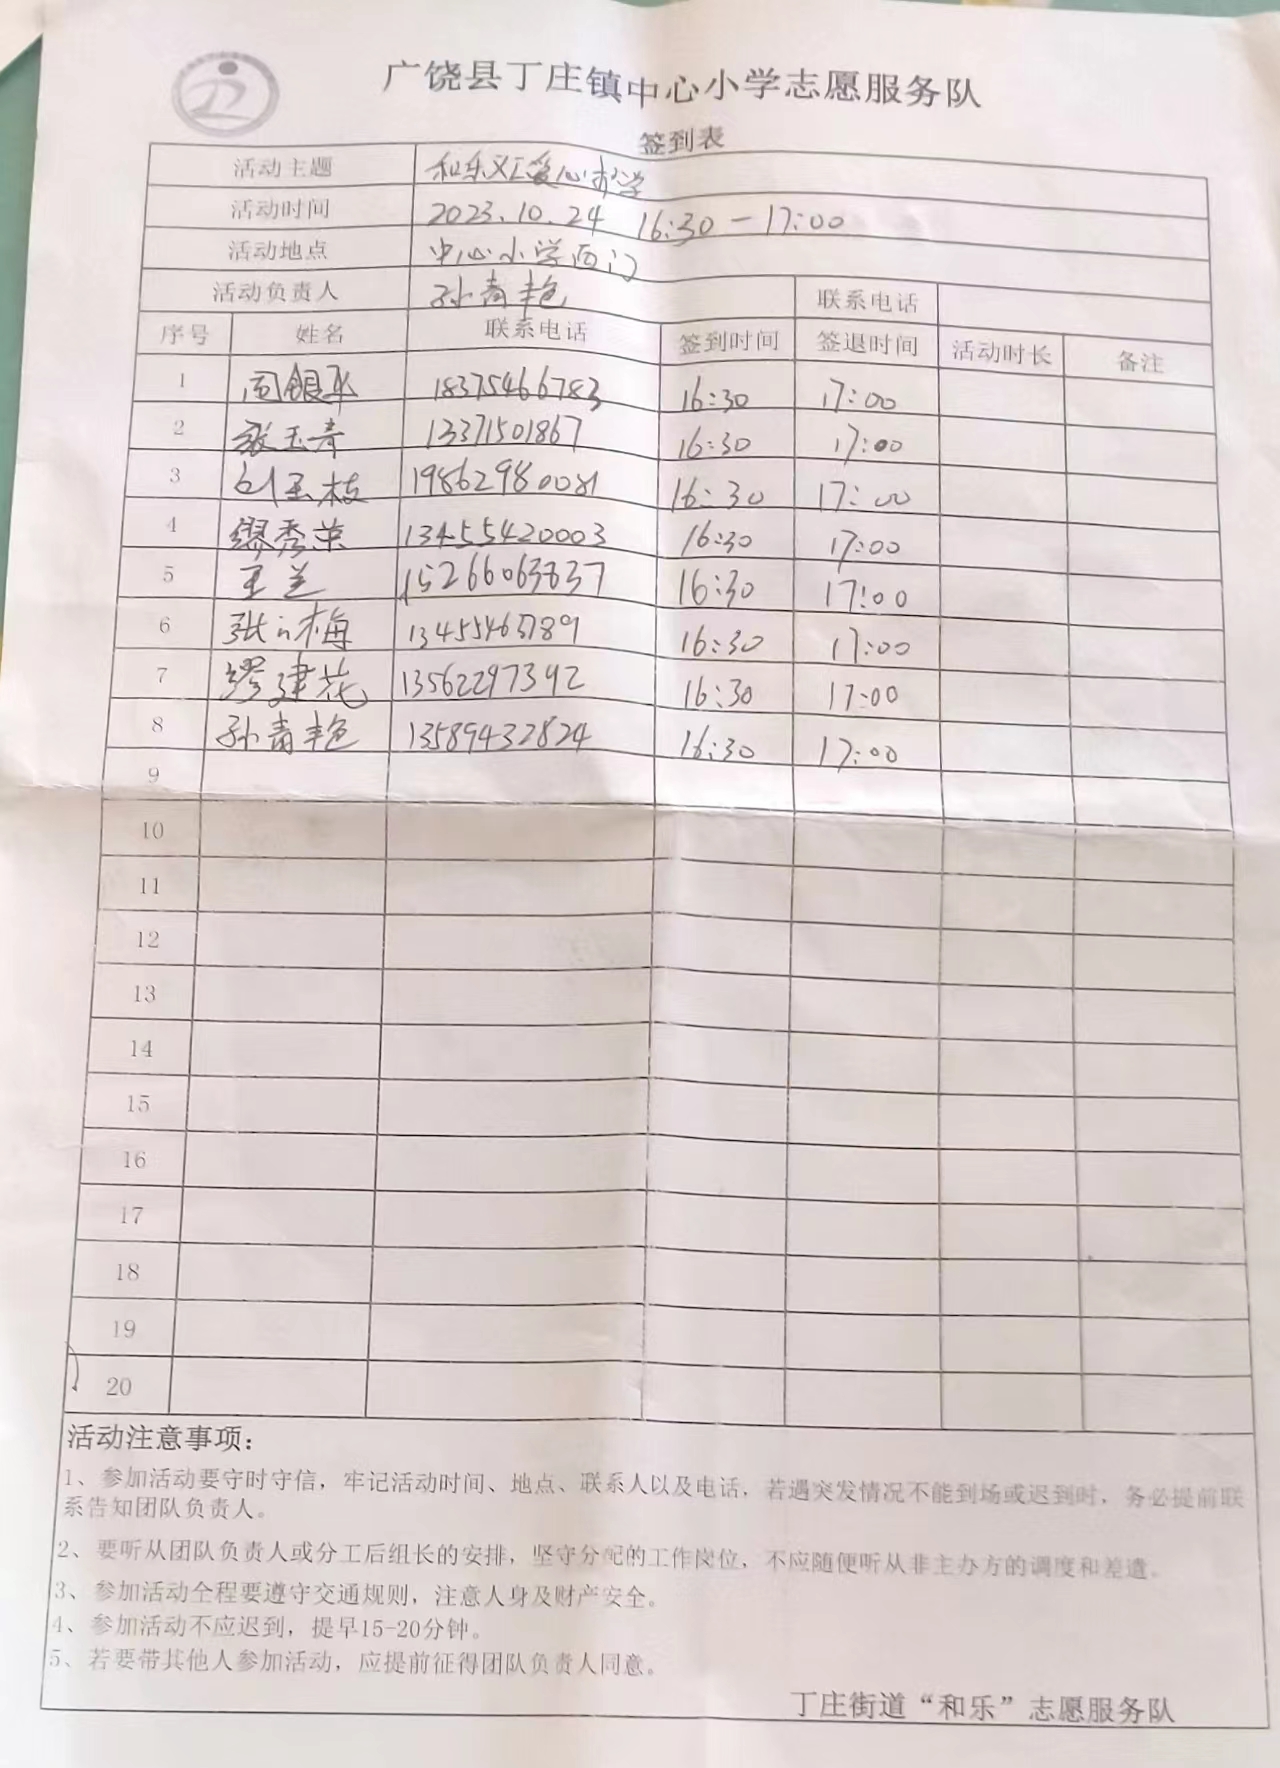 广饶县丁庄镇中心小学志愿服务队
签到表
活动主题 和乐义工爱心护学
活动时间 2023.10.24 16:30—17:00
活动地点 中心小学西门
活动负责人 孙青艳 联系电话
序号 姓名 联系电话 签到时间 签退时间 活动时长 备注
1 司银平 18375466783 16:30 17:00
2 张玉青 13371501867 16:30 17:00
3 刘玉枝 19862980081 16:30 17:00
4 缪秀荣 13455420003 16:30 17:00
5 王兰 15266063837 16:30 17:00
6 张 梅 13455463789 16:30 17:00
7 缪建花 13562297392 16:30 17:00
8 孙青艳 13589432824 16:30 17:00
9
10
11
12
13
14
15
16
17
18
19
20
活动注意事项：
1、参加活动要守时守信，牢记活动时间、地点、联系人以及电话，若遇突发情况不能到场或迟到时，务必提前联
系告知团队负责人。
2、要听从团队负责人或分工后组长的安排，坚守分配的工作岗位，不应随便听从非主办方的调度和差遣。
3、参加活动全程要遵守交通规则，注意人身及财产安全。
4、参加活动不应迟到，提早15-20分钟。
5、若要带其他人参加活动，应提前征得团队负责人同意。
丁庄街道“和乐”志愿服务队